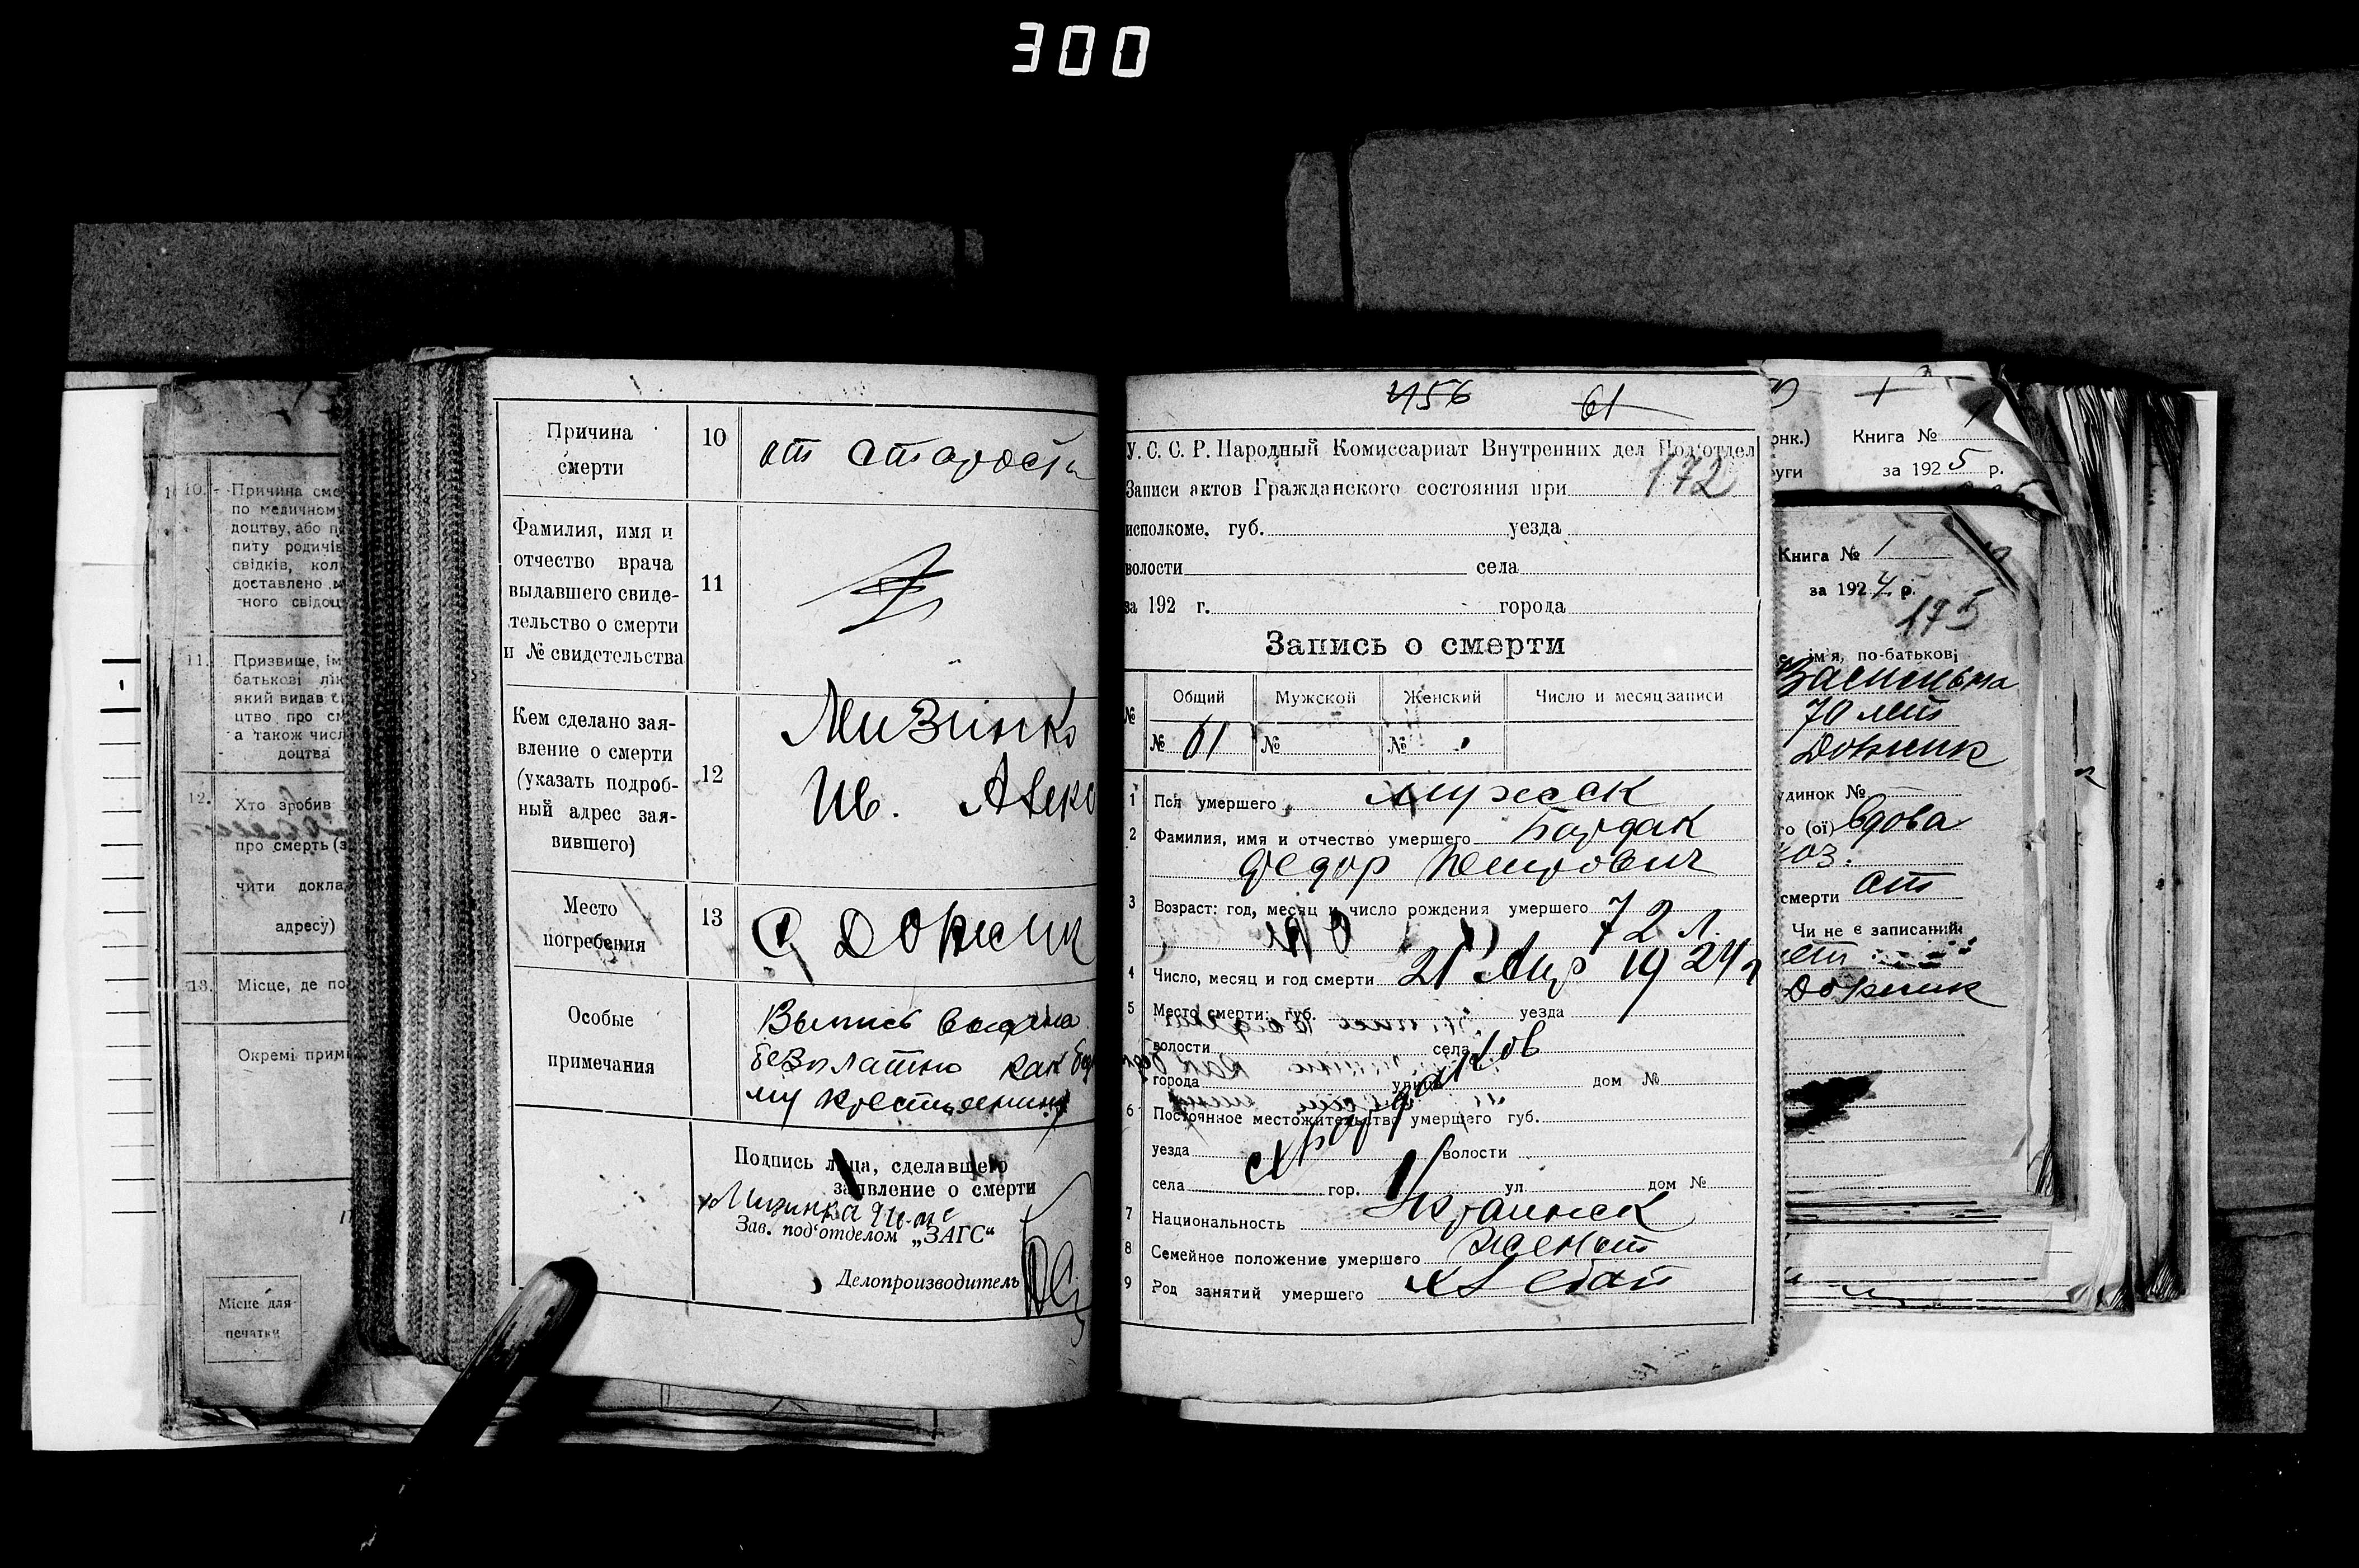 300
Причина
смерти
10
от старости
Фамилия, имя и
отчество врача
выдавшего свиде-
тельство о смерти
и № свидетельства
11
Кем сделано зая-
вление о смерти
(указать подроб-
ный адрес зая-
вившего)
12
Мизинко
Ив. Алекс
Место
погребения
13
Особые
примечания
Выпись выдана
безплатно как бед
му крестьянину
Подпись лица, сделавшего
заявление о смерти
Зав. под'отделом „ЗАГС“
Делопроизводитель
10. Причина сме
по медичному
доцтву, або п
питу родичів
свідків, кол
доставлено м
ного свідоц
11. Призвище, ім
батькові лік
який видав с
цтво про см
а також числ
доцтва
12. Хто зробив
про смерть (з
чити докла
адресу)
13. Місце, де по
Окремі прим
Місце для
печатки
456 61
У. С. С. Р. Народный Комиссариат Внутренних дел Под'отдел
Записи актов Гражданского состояния при 172
исполкоме. губ. уезда
волости села
за 192 г. города
Запись о смерти
№ Общий Мужской Женский Число и месяц записи
№ 61 № №
1 Пол умершего мужск
2 Фамилия, имя и отчество умершего Бардак
Федор Петрович
3 Возраст: год, месяц и число рождения умершего
72 л.
4 Число, месяц и год смерти 21 Апр 1924 г
5 Место смерти: губ. уезда
волости села
города улица дом №
6 Постоянное местожительство умершего губ.
х Бардаков
уезда волости
села гор. ул. дом №
7 Национальность Украинск
8 Семейное положение умершего женат
9 Род занятий умершего хлебоп
онк.) Книга № 1
руги за 1925 р.
Книга № 1
за 1924 р.
175
ім'я, по-батькові
Васильевна
70 лет
удинок №
го (ої) Вдова
смерти от
Чи не є записаний